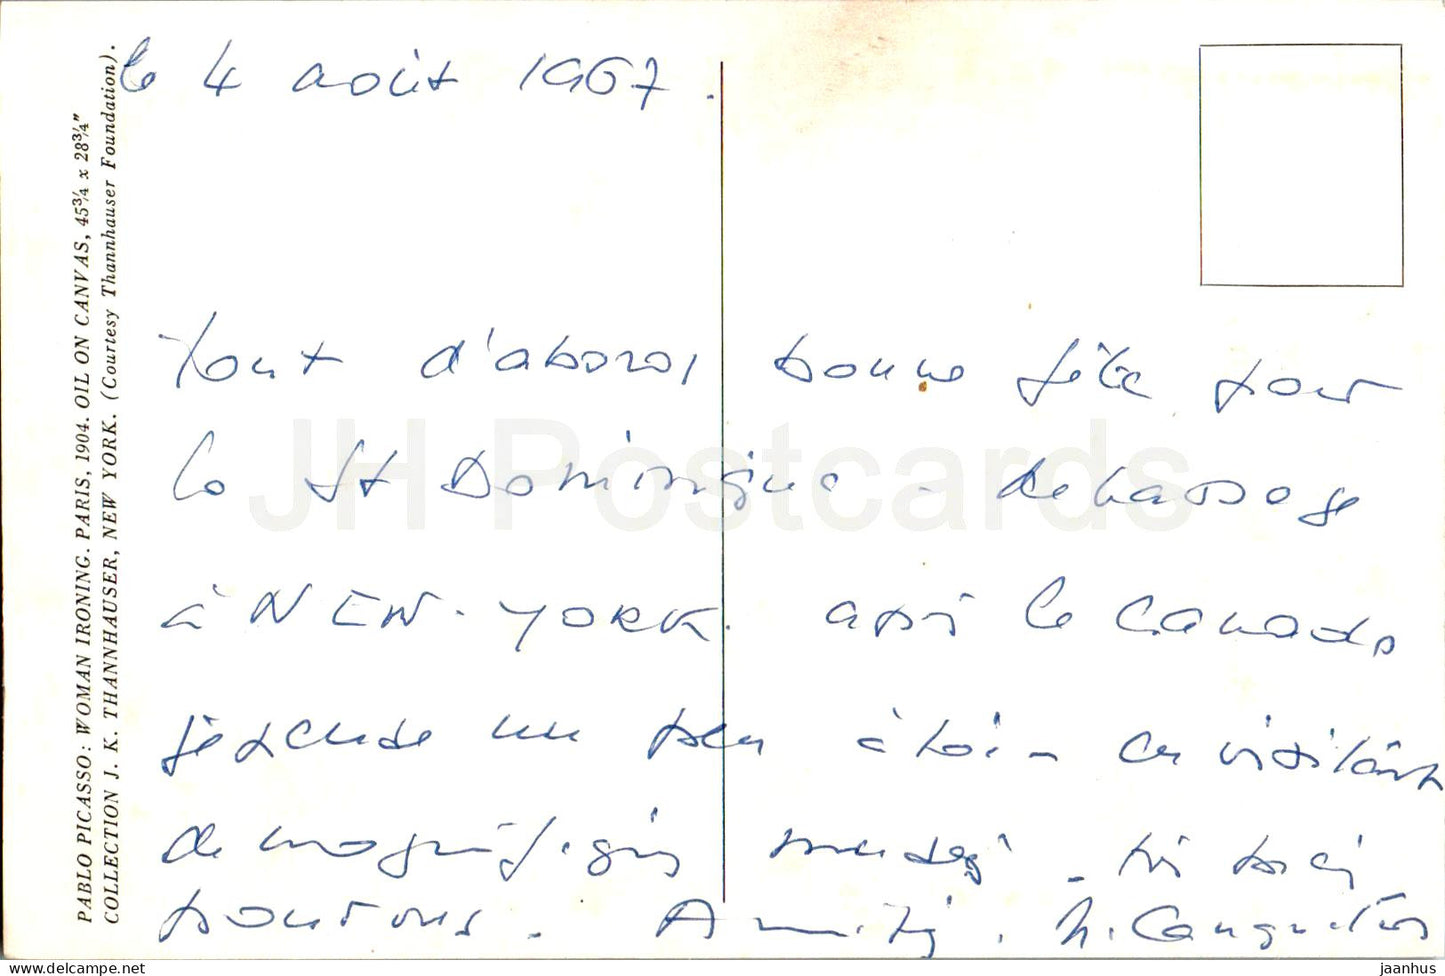 PABLO PICASSO: WOMAN IRONING. PARIS, 1904. OIL ON CANVAS, 45¾ x 28¾"
COLLECTION J. K. THANNHAUSER, NEW YORK. (Courtesy Thannhauser Foundation).
le 4 août 1967.
Tout d'abord bonne fête pour
la St Dominique - de passage
à NEW-YORK. après le Canada
je pense un peu à toi - en visitant
de magnifiques musées - très
pour vous. Amitiés.
JH Postcards
jaanhus